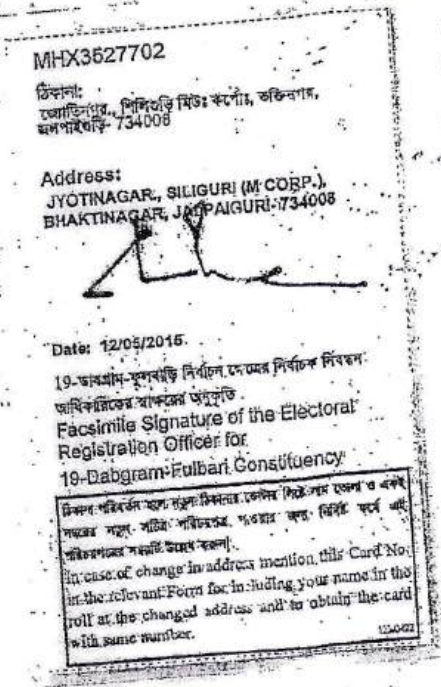 MHX3527702
ঠিকানা:
জ্যোতিনগর, শিলিগুড়ি মিউঃ কর্পোঃ, ভক্তিনগর,
জলপাইগুড়ি- 734008
Address:
JYOTINAGAR, SILIGURI (M CORP.),
BHAKTINAGAR, JALPAIGURI- 734008
Date: 12/05/2015
19-ডাবগ্রাম-ফুলবাড়ি নির্বাচন ক্ষেত্রের নির্বাচক নিবন্ধন
আধিকারিকের স্বাক্ষরের অনুকৃতি
Facsimile Signature of the Electoral
Registration Officer for
19-Dabgram-Fulbari Constituency
ঠিকানা পরিবর্তন হলে নতুন ঠিকানায় ভোটার লিস্টে নাম তোলা ও একই
নম্বরের নতুন সচিত্র পরিচয়পত্র পাওয়ার জন্য নির্দিষ্ট ফর্মে এই
পরিচয়পত্রের নম্বরটি উল্লেখ করুন।
In case of change in address mention this Card No.
in the relevant Form for including your name in the
roll at the changed address and to obtain the card
with same number.